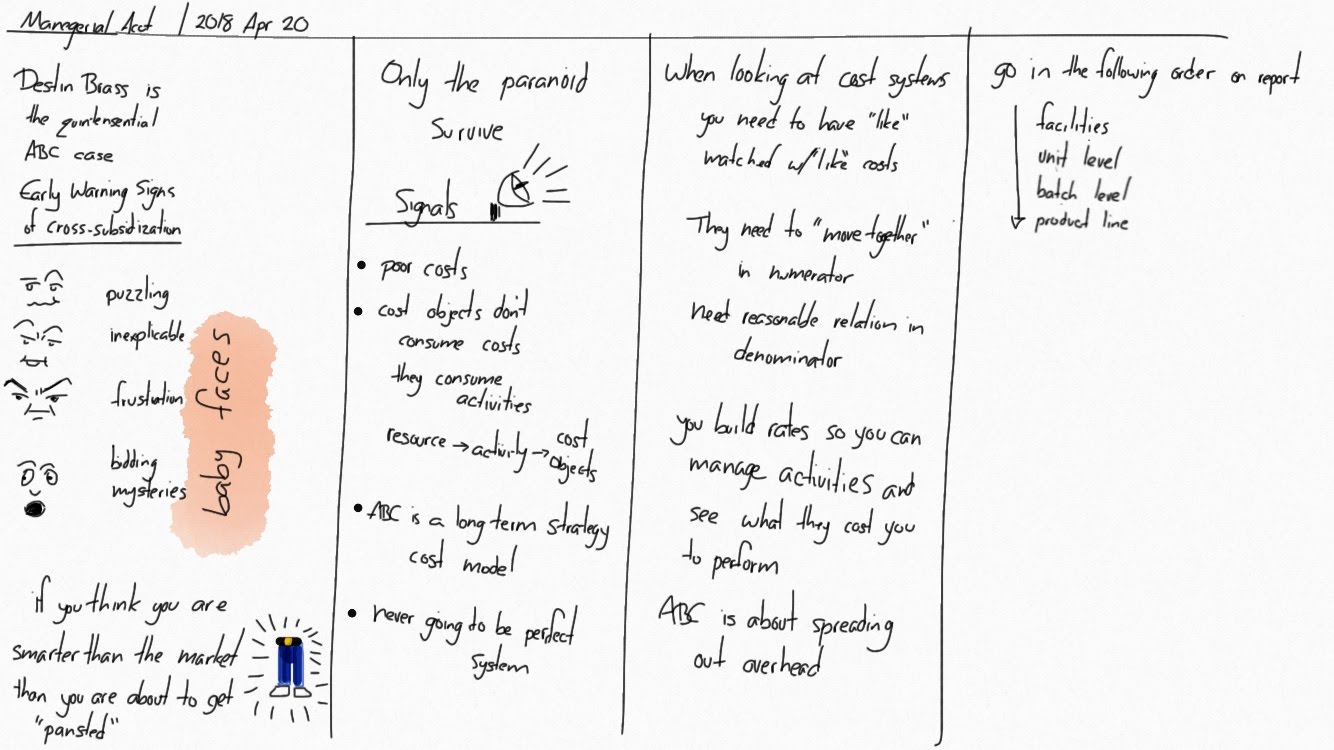 Managerial Acct | 2018 Apr 20
Destin Brass is
the quintensential
ABC case
Early Warning Signs
of cross-subsidization
puzzling
inexplicable
frustration
bidding
mysteries
baby faces
if you think you are
smarter than the market
than you are about to get
"pansted"
Only the paranoid
Survive
Signals
• poor costs
• cost objects don't
consume costs
they consume
activities
resource → activity → cost
objects
• ABC is a long term strategy
cost model
• never going to be perfect
system
When looking at cost systems
you need to have "like"
matched w/"like" costs
They need to "move together"
in numerator
need reasonable relation in
denominator
you build rates so you can
manage activities and
see what they cost you
to perform
ABC is about spreading
out overhead
go in the following order on report
facilities
unit level
batch level
product line